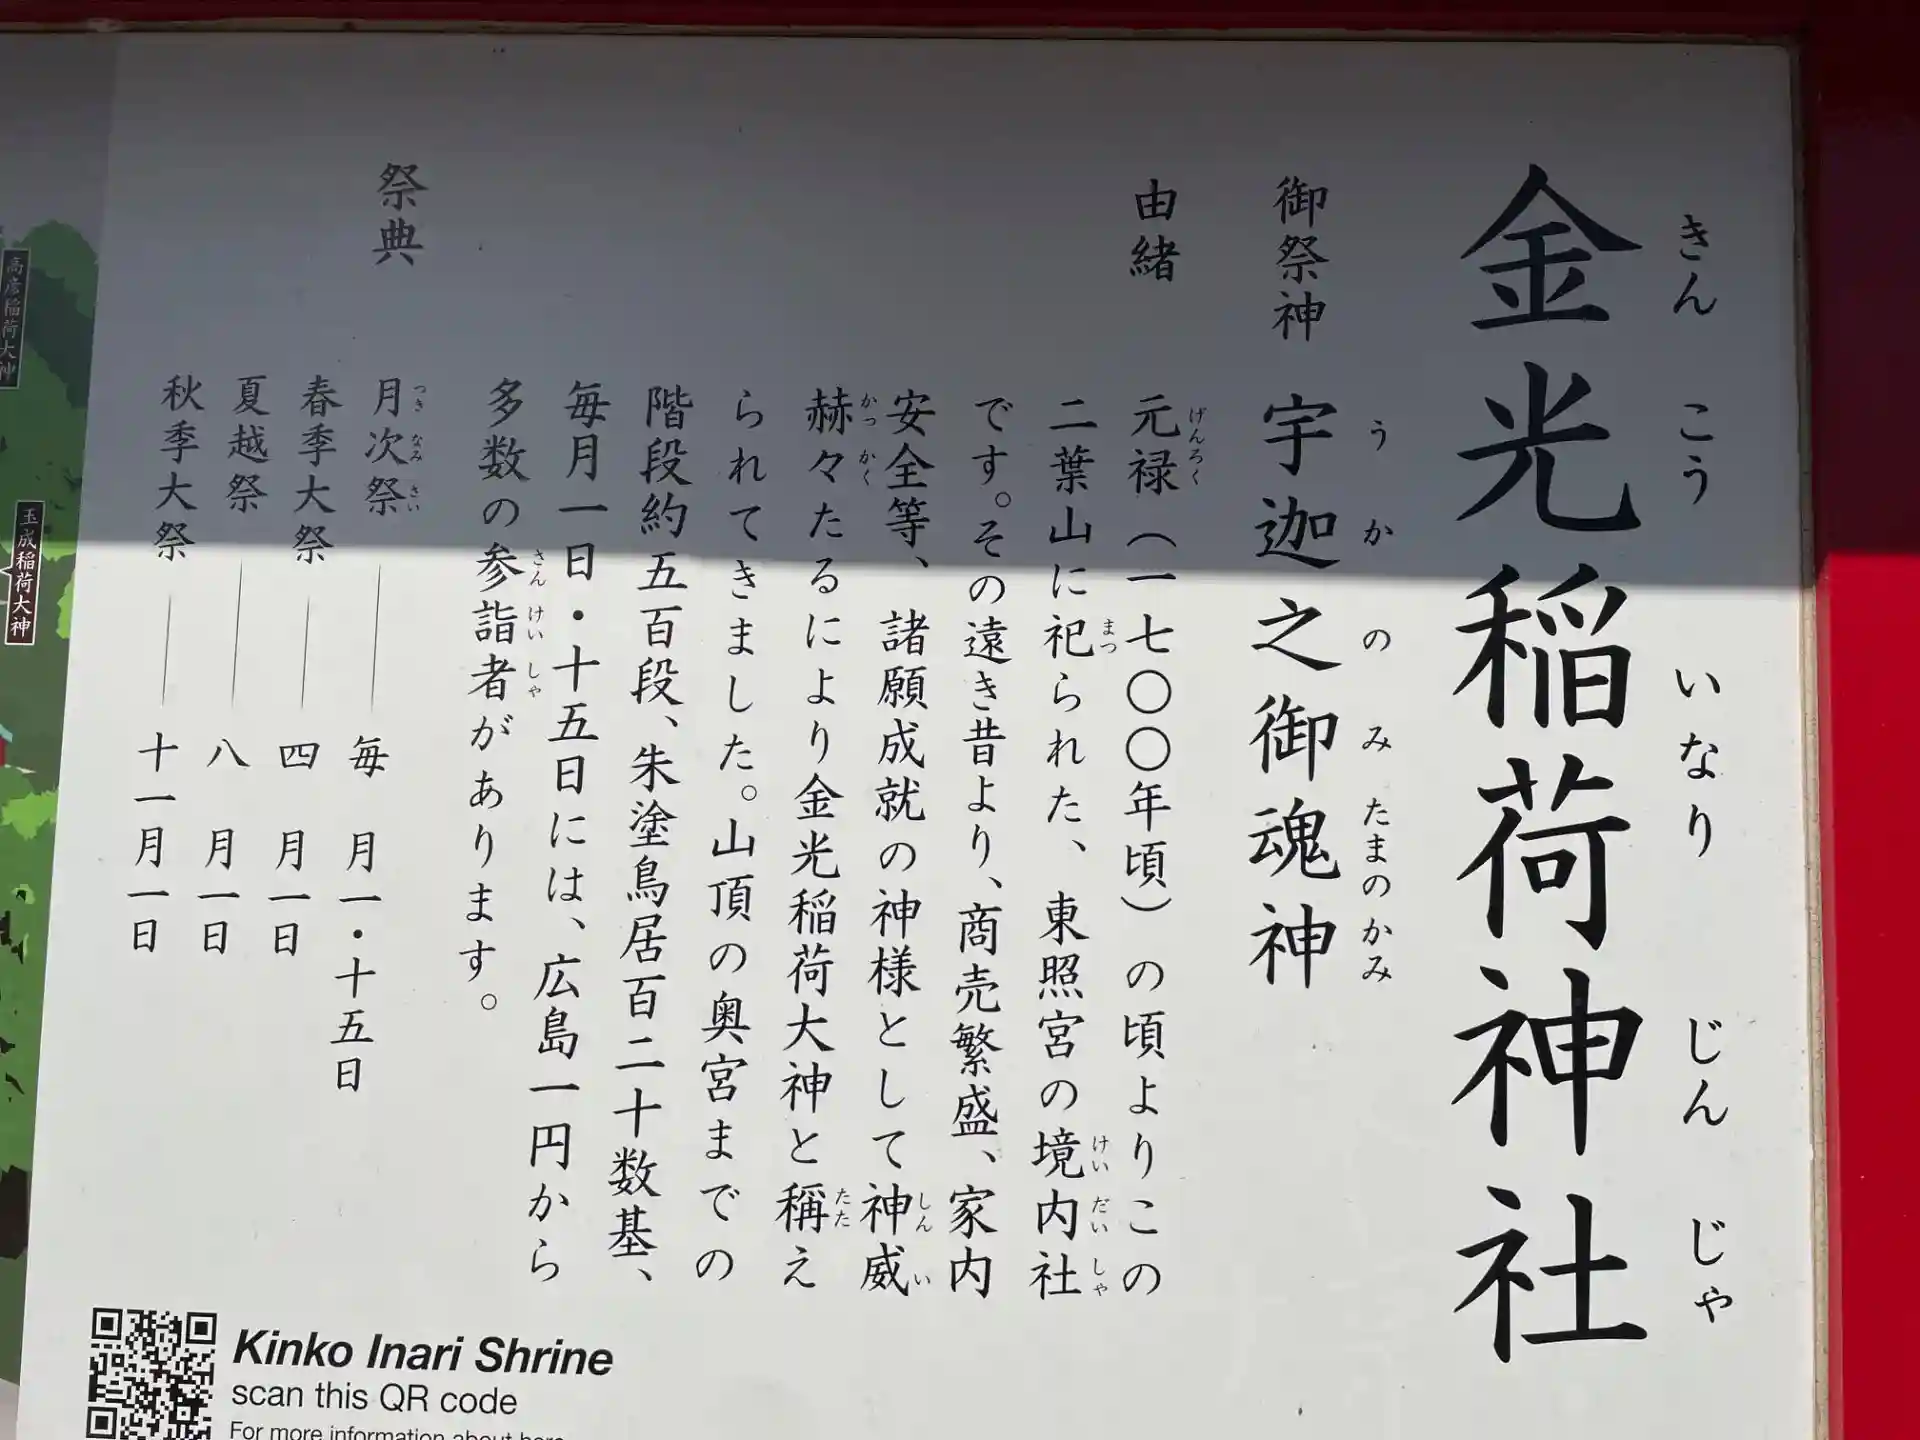 金光稲荷神社
きんこういなりじんじゃ
御祭神 宇迦之御魂神
うかのみたまのかみ
由緒
元禄（一七〇〇年頃）の頃よりこの
げんろく
二葉山に祀られた、東照宮の境内社
まつ けいだいしゃ
です。その遠き昔より、商売繁盛、家内
安全等、諸願成就の神様として神威
しんい
赫々たるにより金光稲荷大神と稱え
かっかく たた
られてきました。山頂の奥宮までの
階段約五百段、朱塗鳥居百二十数基、
毎月一日・十五日には、広島一円から
多数の参詣者があります。
さんけいしゃ
祭典
月次祭 毎月一・十五日
つきなみさい
春季大祭 四月一日
夏越祭 八月一日
秋季大祭 十一月一日
高彦稲荷大神
玉成稲荷大神
Kinko Inari Shrine
scan this QR code
For more information about here